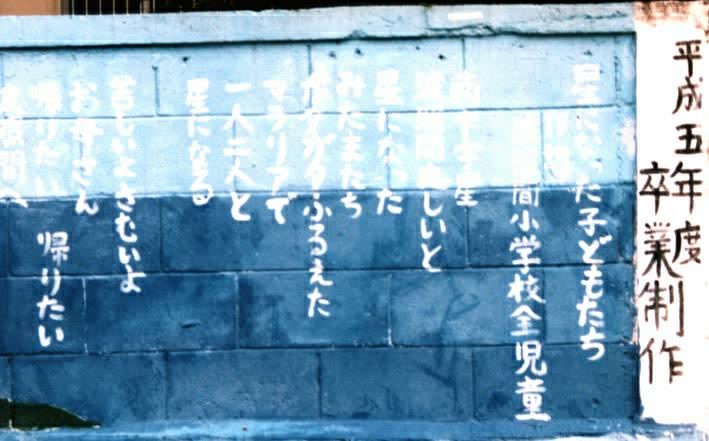 平成五年度
卒業制作
星になった子どもたち
作詞
間小学校全児童
南十字星
しいと
星になった
みたまたち
ガタガタふるえた
マラリアで
一人二人と
星になる
苦しいよさむいよ
お母さん
帰りたい 帰りたい
照間へ